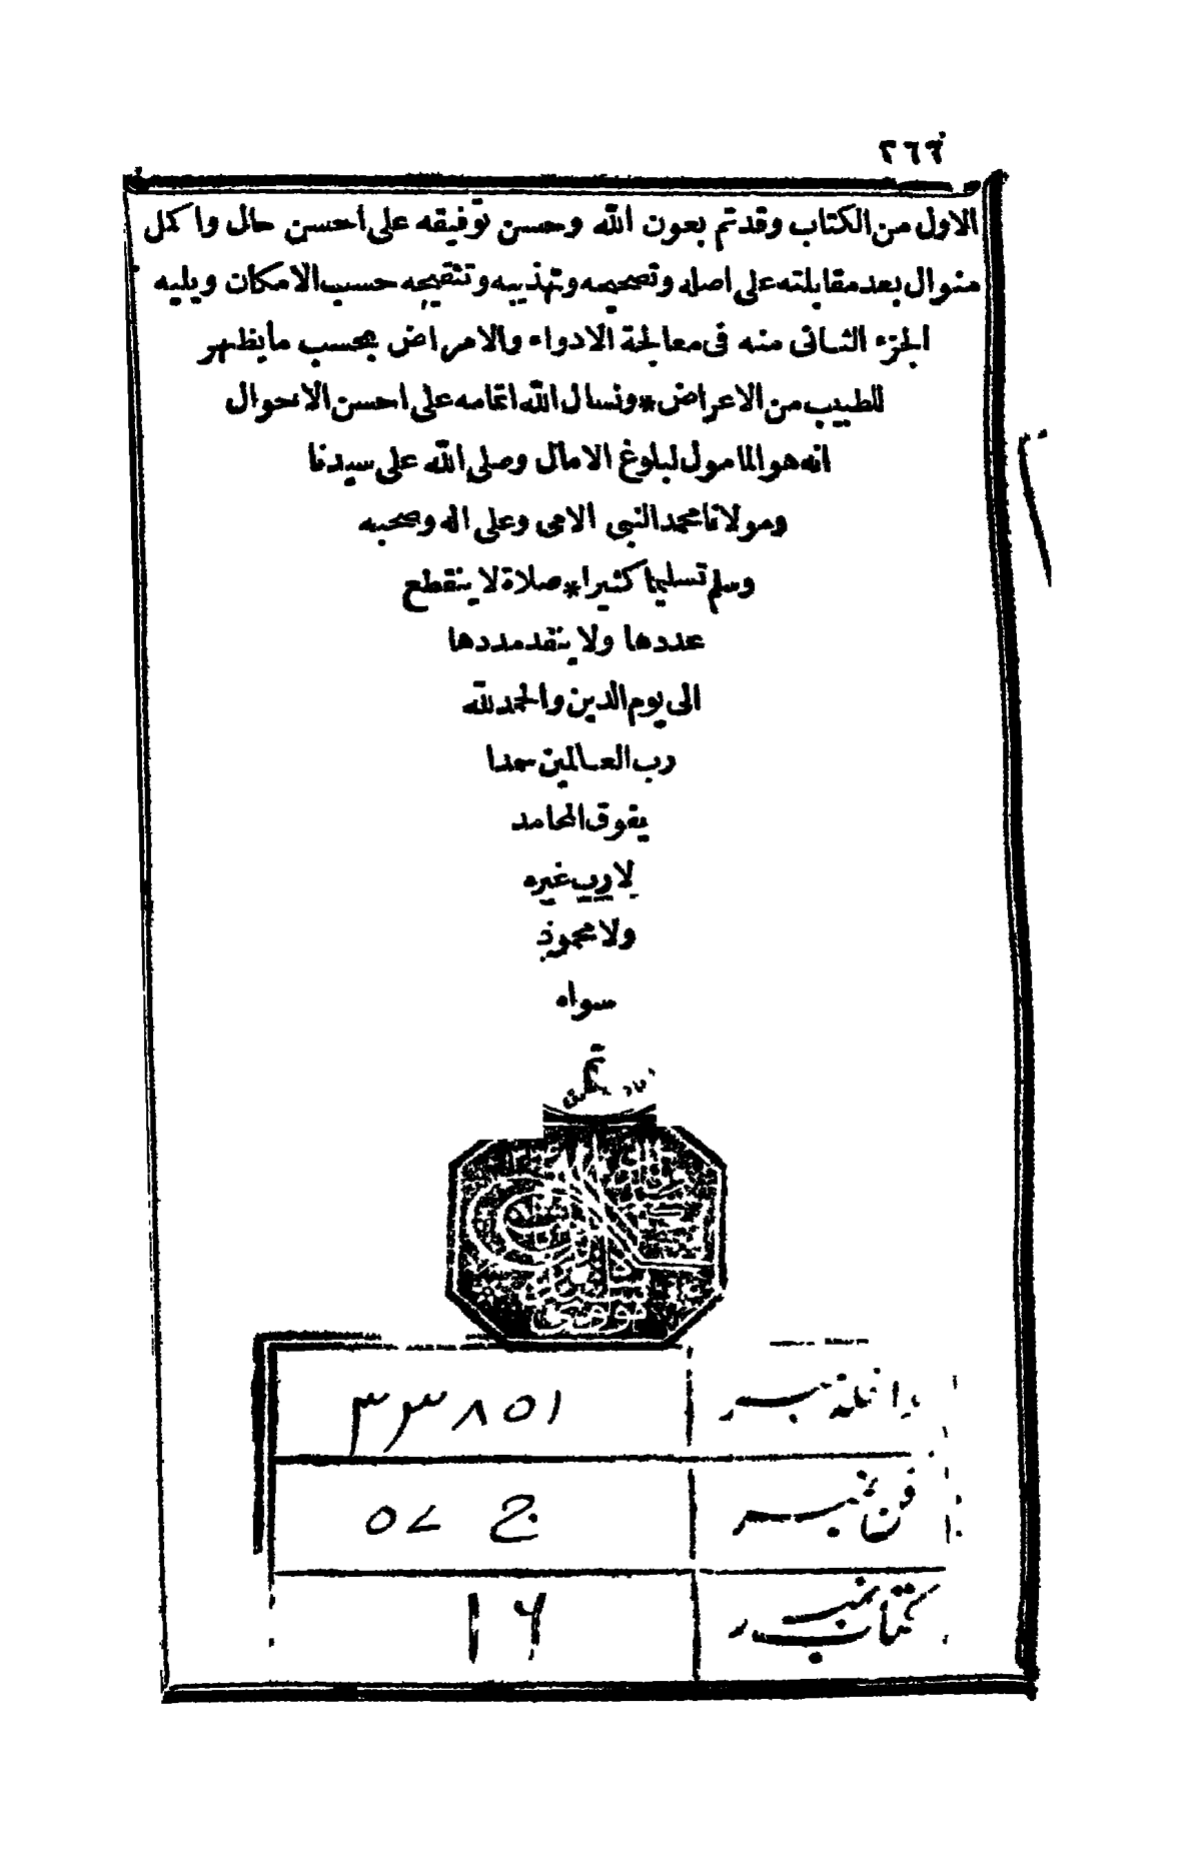 ٢٦٦
الاول من الكتاب وقد تم بعون الله وحسن توفيقه على أحسن حال واكمل
منوال بعد مقابلته على اصله وتصحيحه وتهذيبه وتنقيحه حسب الامكان ويليه
الجزء الثانى منه فى معالجة الادواء والامراض بحسب ما يظهر
للطبيب من الاعراض * ونسال الله اتمامه على احسن الاحوال
انه هو المامول لبلوغ الامال وصلى الله على سيدنا
ومولانا محمد النبى الامى وعلى اله وصحبه
وسلم تسليما كثيرا * صلاة لا ينقطع
عددها ولا ينفد مددها
الى يوم الدين والحمد لله
رب العالمين حمدا
يفوق المحامد
لا رب غيره
ولا معبود
سواه
تم
داخله نمبر ٣٣٨٥١
فن نمبر ج ٥٧
كتاب نمبر ١٦